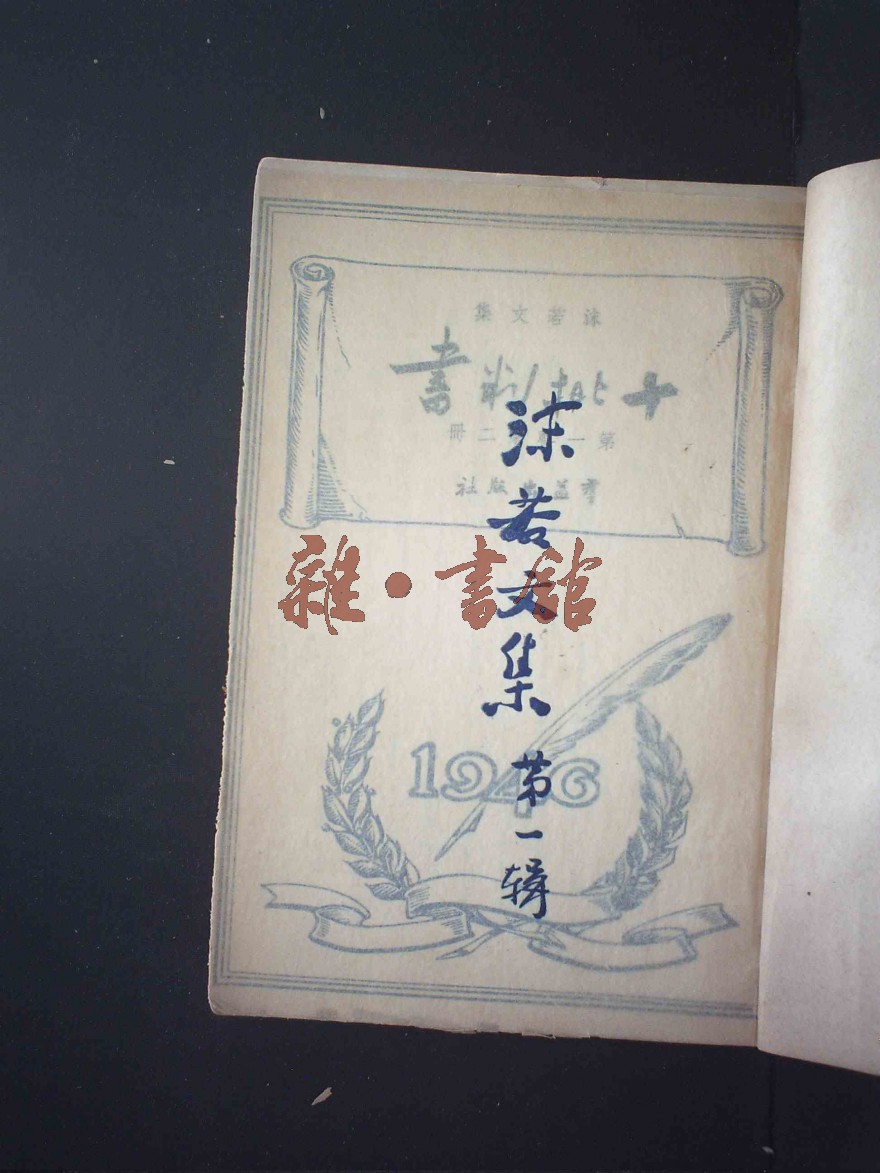 沫若文集
十批判書
第一 二冊
羣益出版社
沫若文集 第一辑
雜·書館
1946